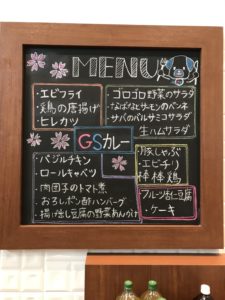 MENU
・エビフライ
・鶏の唐揚げ
・ヒレカツ
・ゴロゴロ野菜のサラダ
・なばなとサーモンのペンネ
・サバのバルサミコサラダ
・生ハムサラダ
GSカレー
・バジルチキン
・ロールキャベツ
・肉団子のトマト煮
・おろしポン酢ハンバーグ
・揚げ出し豆腐の野菜あんかけ
・豚しゃぶ
・エビチリ
・棒棒鶏
・フルーツ杏仁豆腐
・ケーキ